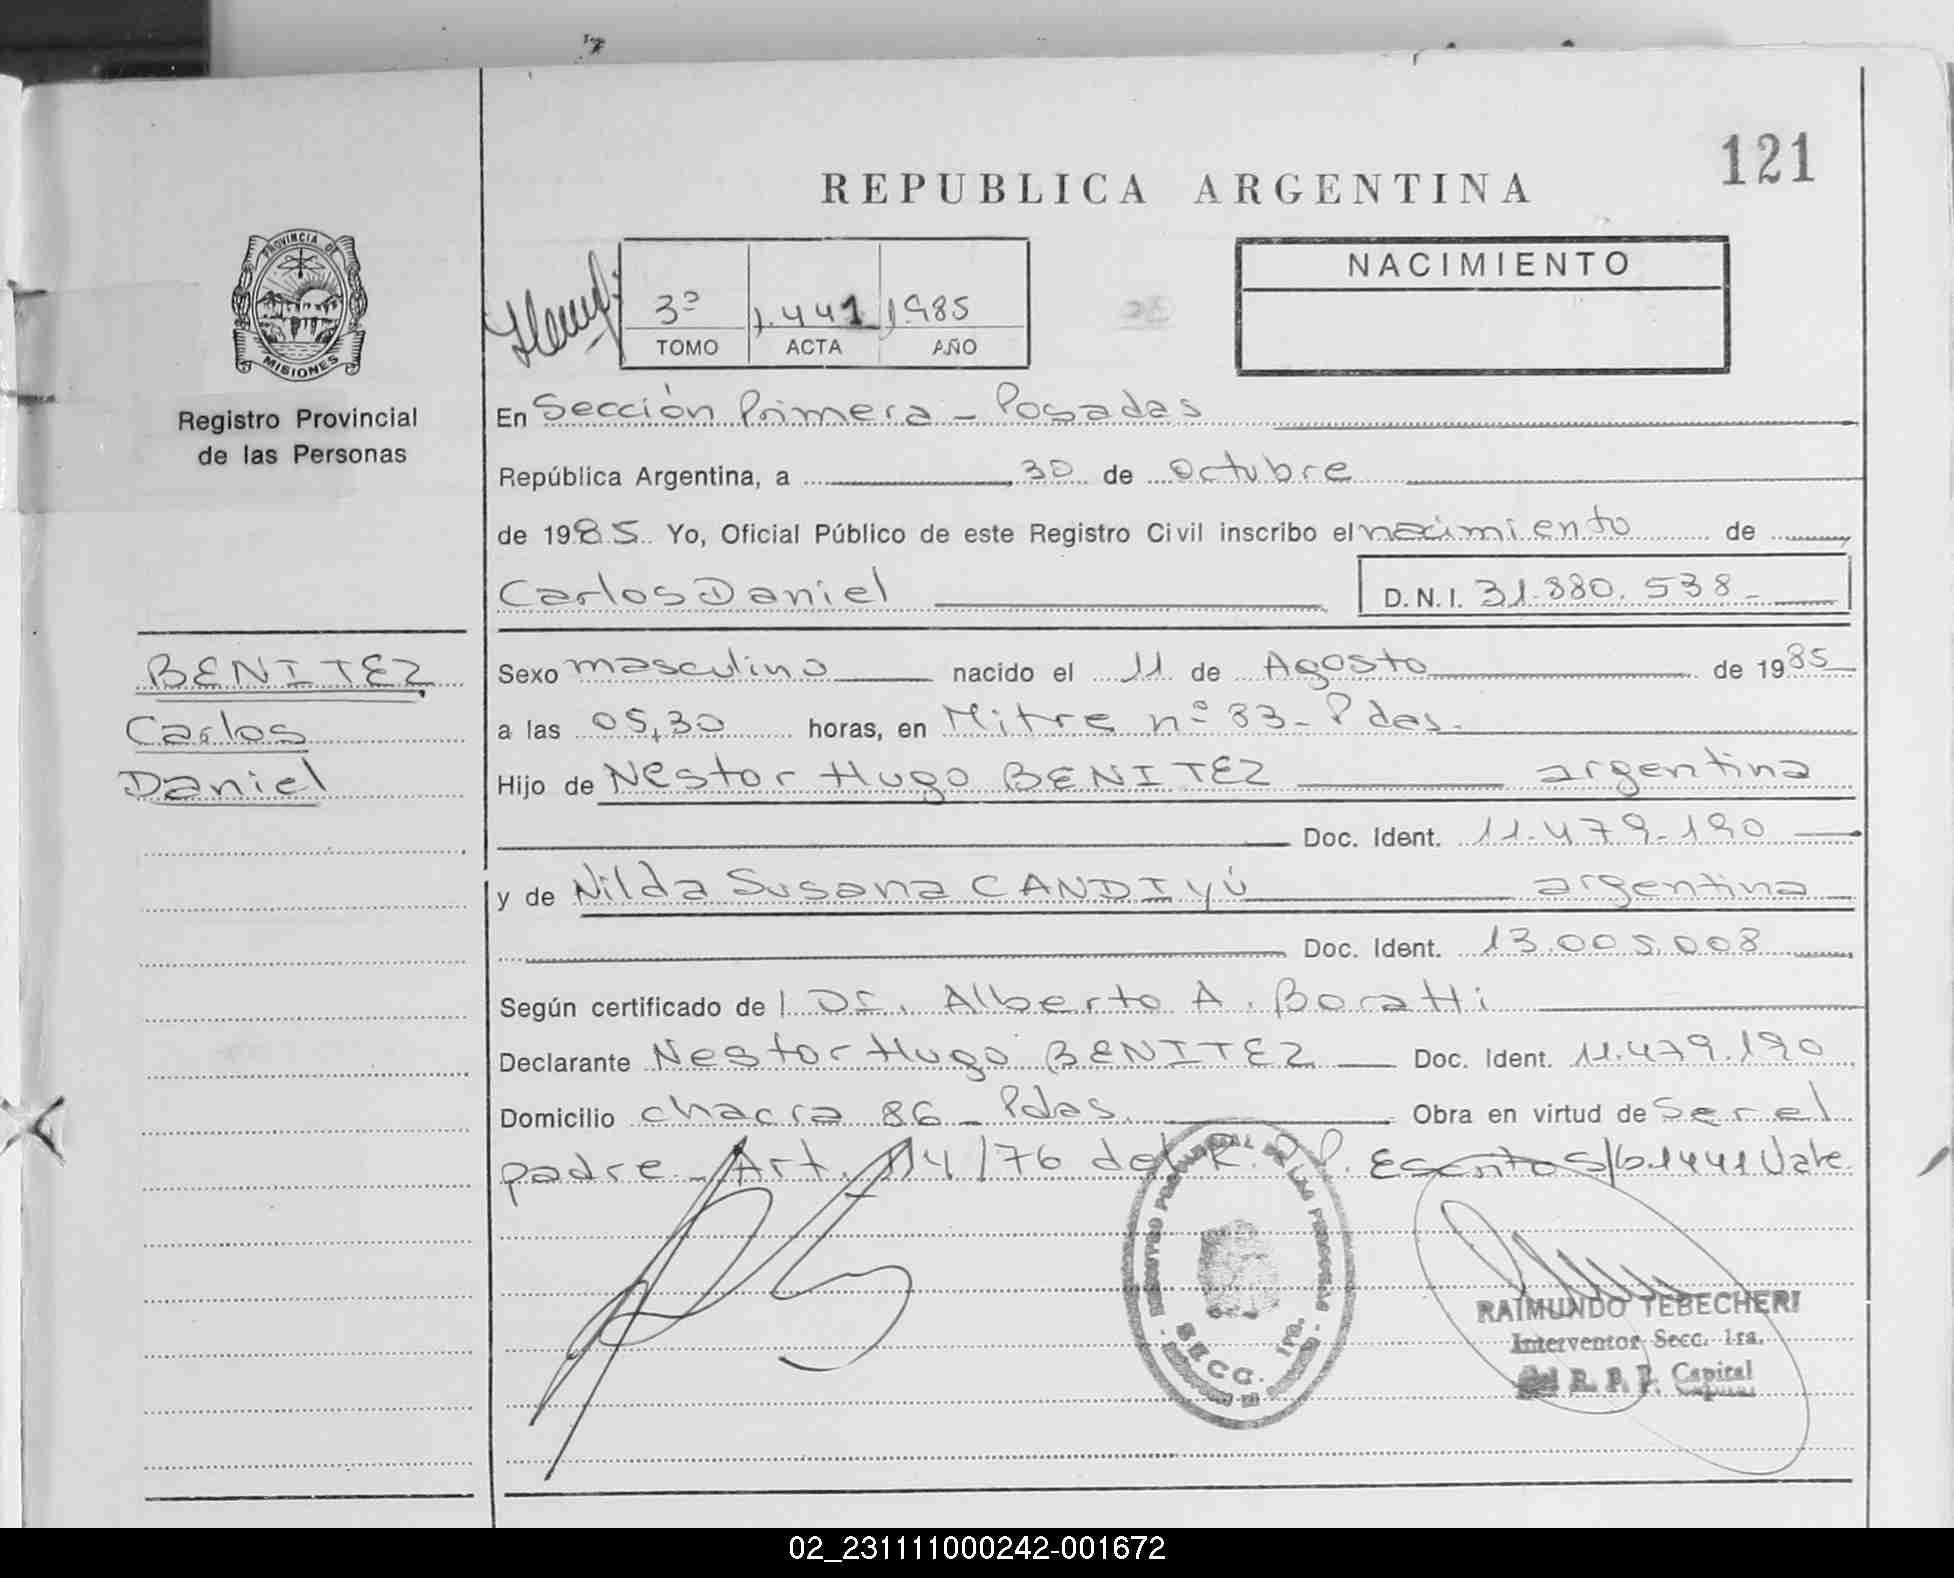 121
REPUBLICA ARGENTINA
PROVINCIA DE
MISIONES
Registro Provincial
de las Personas
3º 1.441 1985
TOMO ACTA AÑO
NACIMIENTO
En Sección Primera - Posadas
República Argentina, a 30 de Octubre
de 1985 Yo, Oficial Público de este Registro Civil inscribo el nacimiento de
Carlos Daniel D.N.I. 31.880.538-
BENITEZ
Carlos
Daniel
Sexo masculino nacido el 11 de Agosto de 1985
a las 05,30 horas, en Mitre nº 83 - Pdas.
Hijo de Nestor Hugo BENITEZ argentina
Doc. Ident. 11.479.190
y de Nilda Susana CANDIYÚ argentina
Doc. Ident. 13.005.008
Según certificado de Dr. Alberto A. Boratti
Declarante Nestor Hugo BENITEZ Doc. Ident. 11.479.190
Domicilio chacra 86 - Pdas. Obra en virtud de Ser el
padre - Art. 114/76 del R.P.P. Escrito S/b 1441 Vale
REGISTRO PROVINCIAL DE LAS PERSONAS
SECC. 1ra.
RAIMUNDO TEBECHERI
Interventor Secc. 1ra.
del R. P. P. Capital
02_231111000242-001672